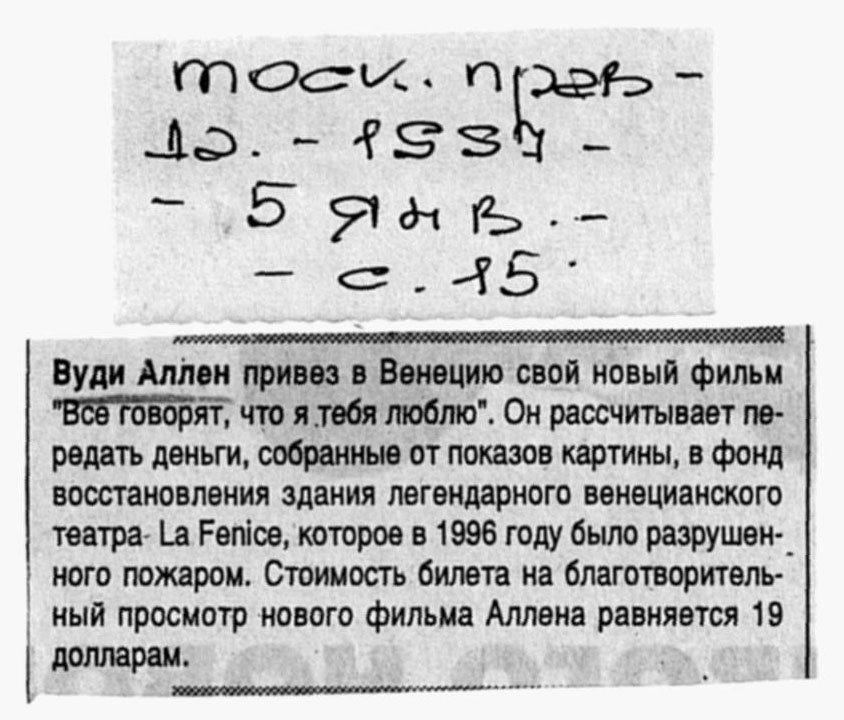 моск.. прав –
12. – 1997 –
– 5 янв. –
– с. 15.
Вуди Аллен привез в Венецию свой новый фильм
"Все говорят, что я тебя люблю". Он рассчитывает пе-
редать деньги, собранные от показов картины, в фонд
восстановления здания легендарного венецианского
театра La Fenice, которое в 1996 году было разрушен-
ного пожаром. Стоимость билета на благотворитель-
ный просмотр нового фильма Аллена равняется 19
долларам.